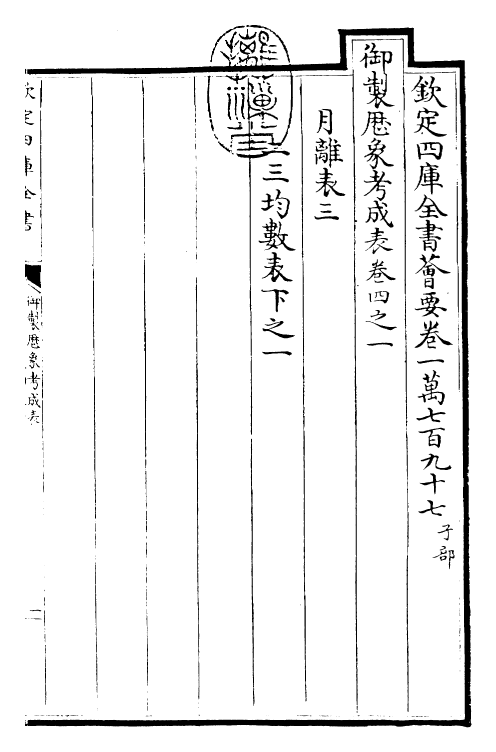 欽定四庫全書薈要卷一萬七百九十七 子部
御製厯象考成表卷四之一
月離表三
二三均數表下之一
欽定四庫全書
御製厯象考成表